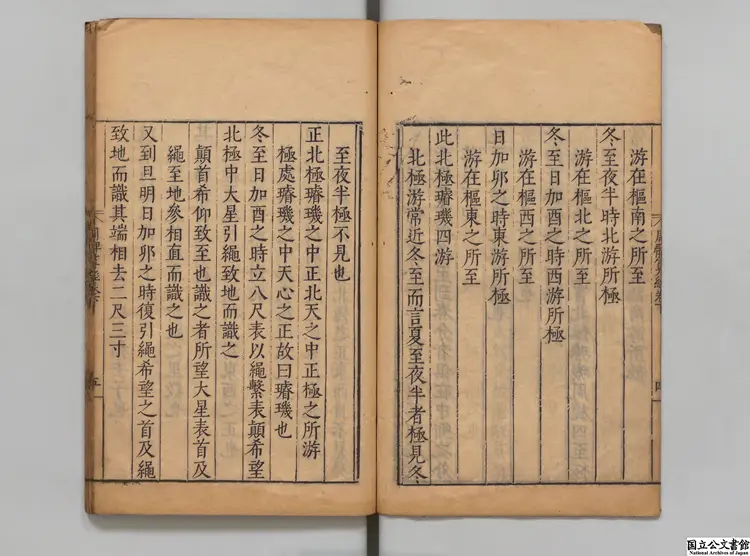 游在樞南之所至
冬至夜半時北游所極
游在樞北之所至
冬至日加酉之時西游所極
游在樞西之所至
日加卯之時東游所極
游在樞東之所至
此北極璿璣四游
北極游常近冬至而言夏至夜半者極見冬
至夜半極不見也
正北極璿璣之中正北天之中正極之所游
極處璿璣之中天心之正故曰璿璣也
冬至日加酉之時立八尺表以繩繫表顛希望
北極中大星引繩致地而識之
顛首希仰致至也識之者所望大星表首及
繩至地參相直而識之也
又到旦明日加卯之時復引繩希望之首及繩
致地而識其端相去二尺三寸
国立公文書館
National Archives of Japan